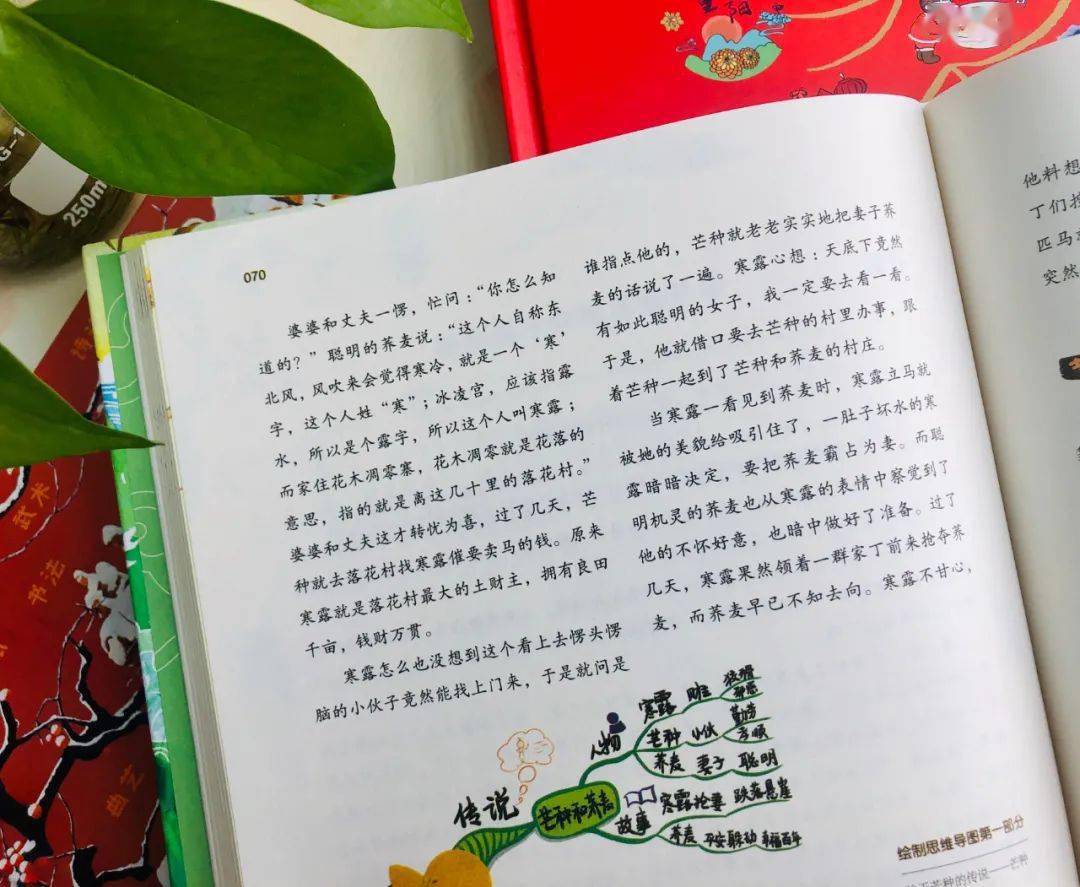 070
婆婆和丈夫一愣，忙问：“你怎么知
道的？”聪明的荞麦说：“这个人自称东
北风，风吹来会觉得寒冷，就是一个‘寒’
字，这个人姓“寒”；冰凌宫，应该指露
水，所以是个露字，所以这个人叫寒露；
而家住花木凋零寨，花木凋零就是花落的
意思，指的就是离这几十里的落花村。”
婆婆和丈夫这才转忧为喜，过了几天，芒
种就去落花村找寒露催要卖马的钱。原来
寒露就是落花村最大的土财主，拥有良田
千亩，钱财万贯。
寒露怎么也没想到这个看上去愣头愣
脑的小伙子竟然能找上门来，于是就问是
谁指点他的，芒种就老老实实地把妻子荞
麦的话说了一遍。寒露心想：天底下竟然
有如此聪明的女子，我一定要去看一看。
于是，他就借口要去芒种的村里办事，跟
着芒种一起到了芒种和荞麦的村庄。
当寒露一看见到荞麦时，寒露立马就
被她的美貌给吸引住了，一肚子坏水的寒
露暗暗决定，要把荞麦霸占为妻。而聪
明机灵的荞麦也从寒露的表情中察觉到了
他的不怀好意，也暗中做好了准备。过了
几天，寒露果然领着一群家丁前来抢夺荞
麦，而荞麦早已不知去向。寒露不甘心，
传说
芒种和荞麦
人物
寒露
芒种 小伙 勤劳
孝顺
荞麦 妻子 聪明
故事
寒露抢妻 跌落悬崖
荞麦 平安躲劫 幸福百年
绘制思维导图第一部分
芒种的传说——芒种
他料想
丁们
匹马
突然
250m
G-1
阳
武术
书法
曲艺
诗